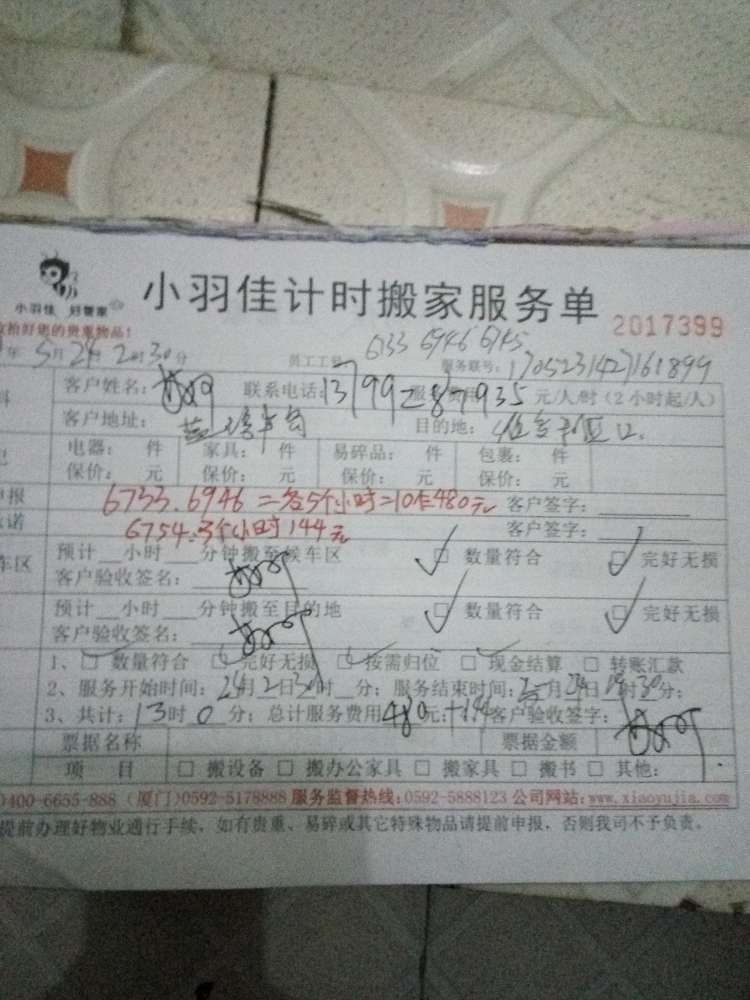 小羽佳 好管家
小羽佳计时搬家服务单
2017399
收拾好您的贵重物品!
年 5月24 2时30分 员工工号 6733 6946 6745 服务联号: 1705231427161899
客户姓名: 联系电话: 13799287935 元/人/时(2小时起/人)
客户地址: 目的地:
电器: 件 家具: 件 易碎品: 件 包裹: 件
保价: 元 保价: 元 保价: 元 保价: 元
6733.6946=各5个小时=10 480元 客户签字:
6754.3个小时144元 客户签字:
车区 预计__小时__分钟搬至候车区 □ 数量符合 □ 完好无损
客户验收签名:
预计__小时__分钟搬至目的地 □ 数量符合 □ 完好无损
客户验收签名:
1、□ 数量符合 □ 完好无损 □ 按需归位 □ 现金结算 □ 转账汇款
2、服务开始时间: 24月2日30时__分; 服务结束时间: 月24日19时30分;
3、共计: 13时0分; 总计服务费用480元+144 客户验收签字:
票据名称 票据金额
项 目 □ 搬设备 □ 搬办公家具 □ 搬家具 □ 搬书 □ 其他:
)400-6655-888 (厦门)0592-5178888 服务监督热线:0592-5888123 公司网站:www.xiaoyujia.com
提前办理好物业通行手续,如有贵重、易碎或其它特殊物品请提前申报,否则我司不予负责。